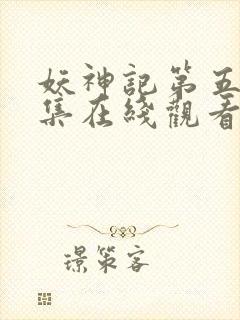 妖神記第五
集在綫觀看
璟策客